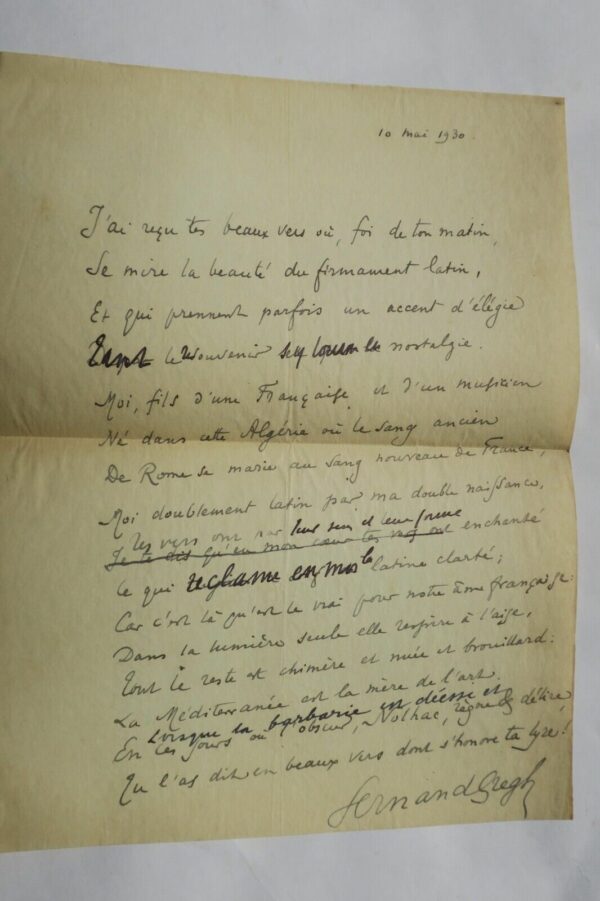 10 mai 1930.
J'ai reçu tes beaux vers où, foi de ton matin,
Se mire la beauté du firmament latin,
Et qui prennent parfois un accent d'élégie
Tant le souvenir nostalgie.
Moi, fils d'une Française et d'un musicien
Né dans cette Algérie où le sang ancien
De Rome se marie au sang nouveau de France,
Moi doublement latin par ma double naissance,
Tes vers ont par leur sens et leur forme
Je te dis qu'en mon cœur tes vers ont enchanté
Ce qui réclame en moi la latine clarté ;
Car c'est là qu'est le vrai pour notre âme française :
Dans la lumière seule elle respire à l'aise,
Tout le reste est chimère et nuée et brouillard :
La Méditerranée est la mère de l'art.
Lorsque la barbarie est déesse et
En ces jours où obscur, Nolhac, règne délire,
Tu l'as dit en beaux vers dont s'honore ta lyre !
Fernand Gregh